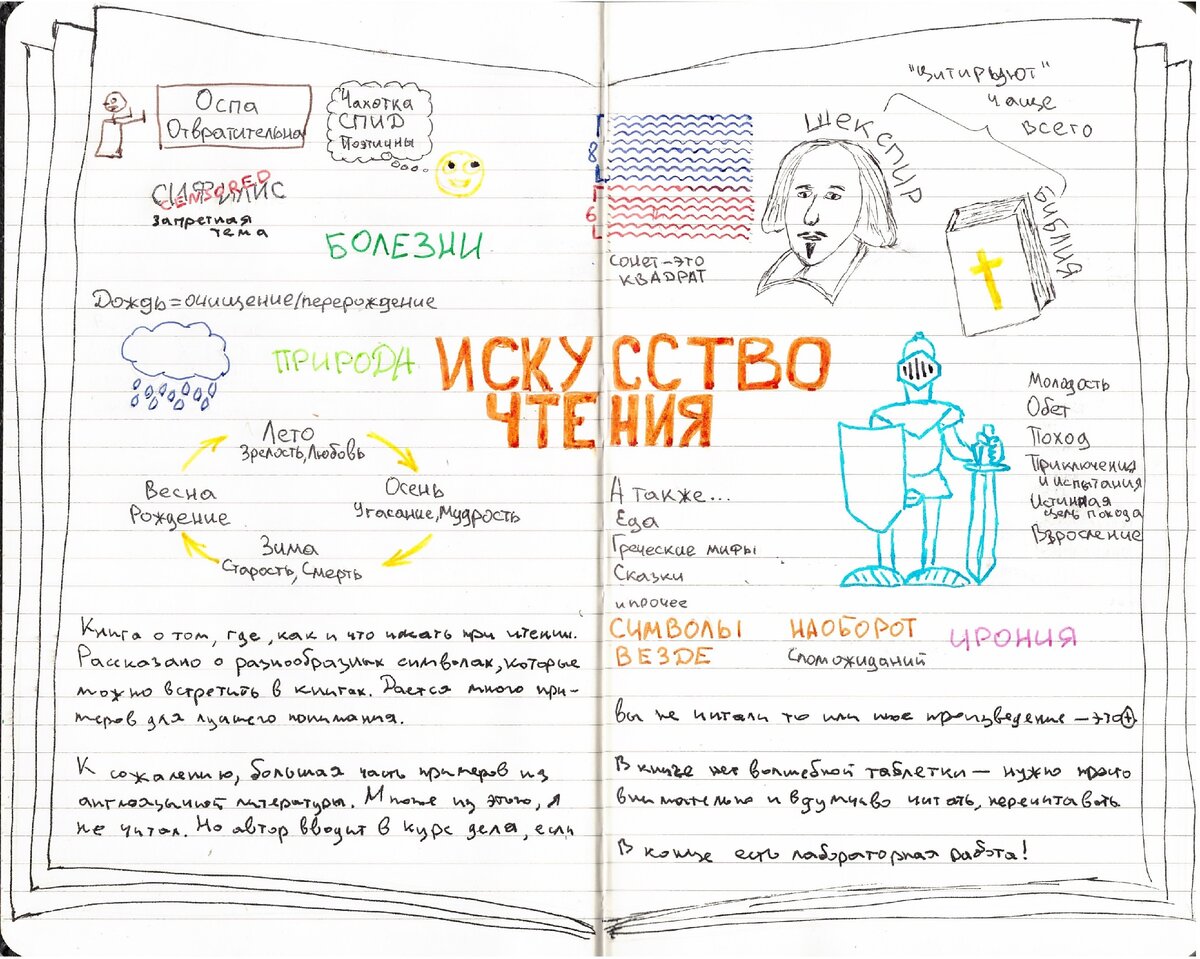 Оспа
Отвратительна
Чахотка
СПИД
Поэтичны
СИФИЛИС
CENSORED
Запретная
тема
БОЛЕЗНИ
Дождь=очищение/перерождение
ПРИРОДА
Лето
Зрелость, Любовь
Весна
Рождение
Осень
Угасание, Мудрость
Зима
Старость, Смерть
ИСКУССТВО
ЧТЕНИЯ
"цитируют"
чаще
всего
ШЕКСПИР
БИБЛИЯ
8
6
Сонет-это
КВАДРАТ
Молодость
Обет
Поход
Приключения
и испытания
Истинная
цель похода
Взросление
А также...
Еда
Греческие мифы
Сказки
и прочее
СИМВОЛЫ
ВЕЗДЕ
НАОБОРОТ
Слом ожиданий
ИРОНИЯ
Книга о том, где, как и что искать при чтении.
Рассказано о разнообразных символах, которые
можно встретить в книгах. Дается много при-
меров для лучшего понимания.
К сожалению, большая часть примеров из
англоязычной литературы. Многое из этого, я
не читал. Но автор вводит в курс дела, если
вы не читали то или иное произведение — это +
В книге нет волшебной таблетки — нужно просто
внимательно и вдумчиво читать, перечитывать
В конце есть лабораторная работа!